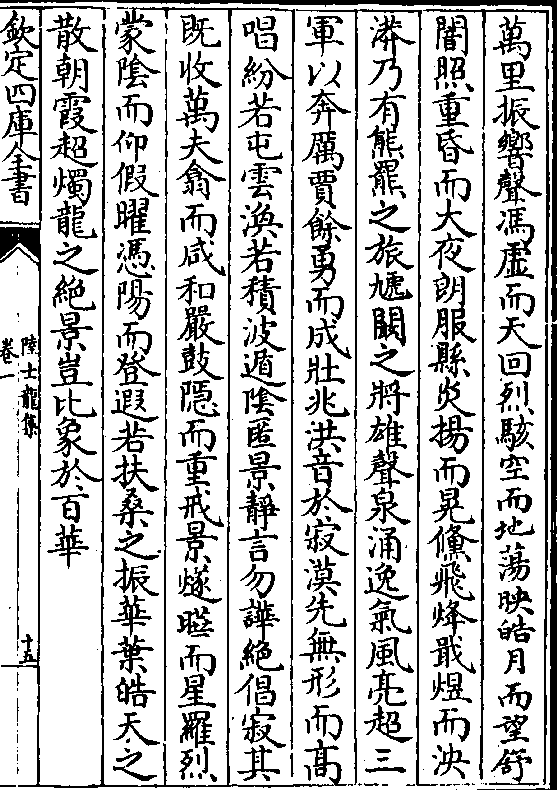 萬里振響聲馮虛而天回烈駭空而地蕩映皓月而望舒
闇照重昏而大夜朗服縣炎揚而晃儻飛烽戢煜而泱
漭乃有熊羆之旅虓闞之將雄聲泉涌逸氣風亮超三
軍以奔厲賈餘勇而成壯兆洪音於寂漠先無形而髙
唱紛若屯雲渙若積波遁陰匿景靜言勿譁絶倡寂其
既收萬夫翕而咸和嚴鼓隱而重戒景燧𥌓而星羅烈
蒙陰而仰假曜憑陽而登遐若扶桑之振華葉皓天之
散朝霞超燭龍之絶景豈比象於百華
欽定四庫全書
陸士龍集
卷一
十五